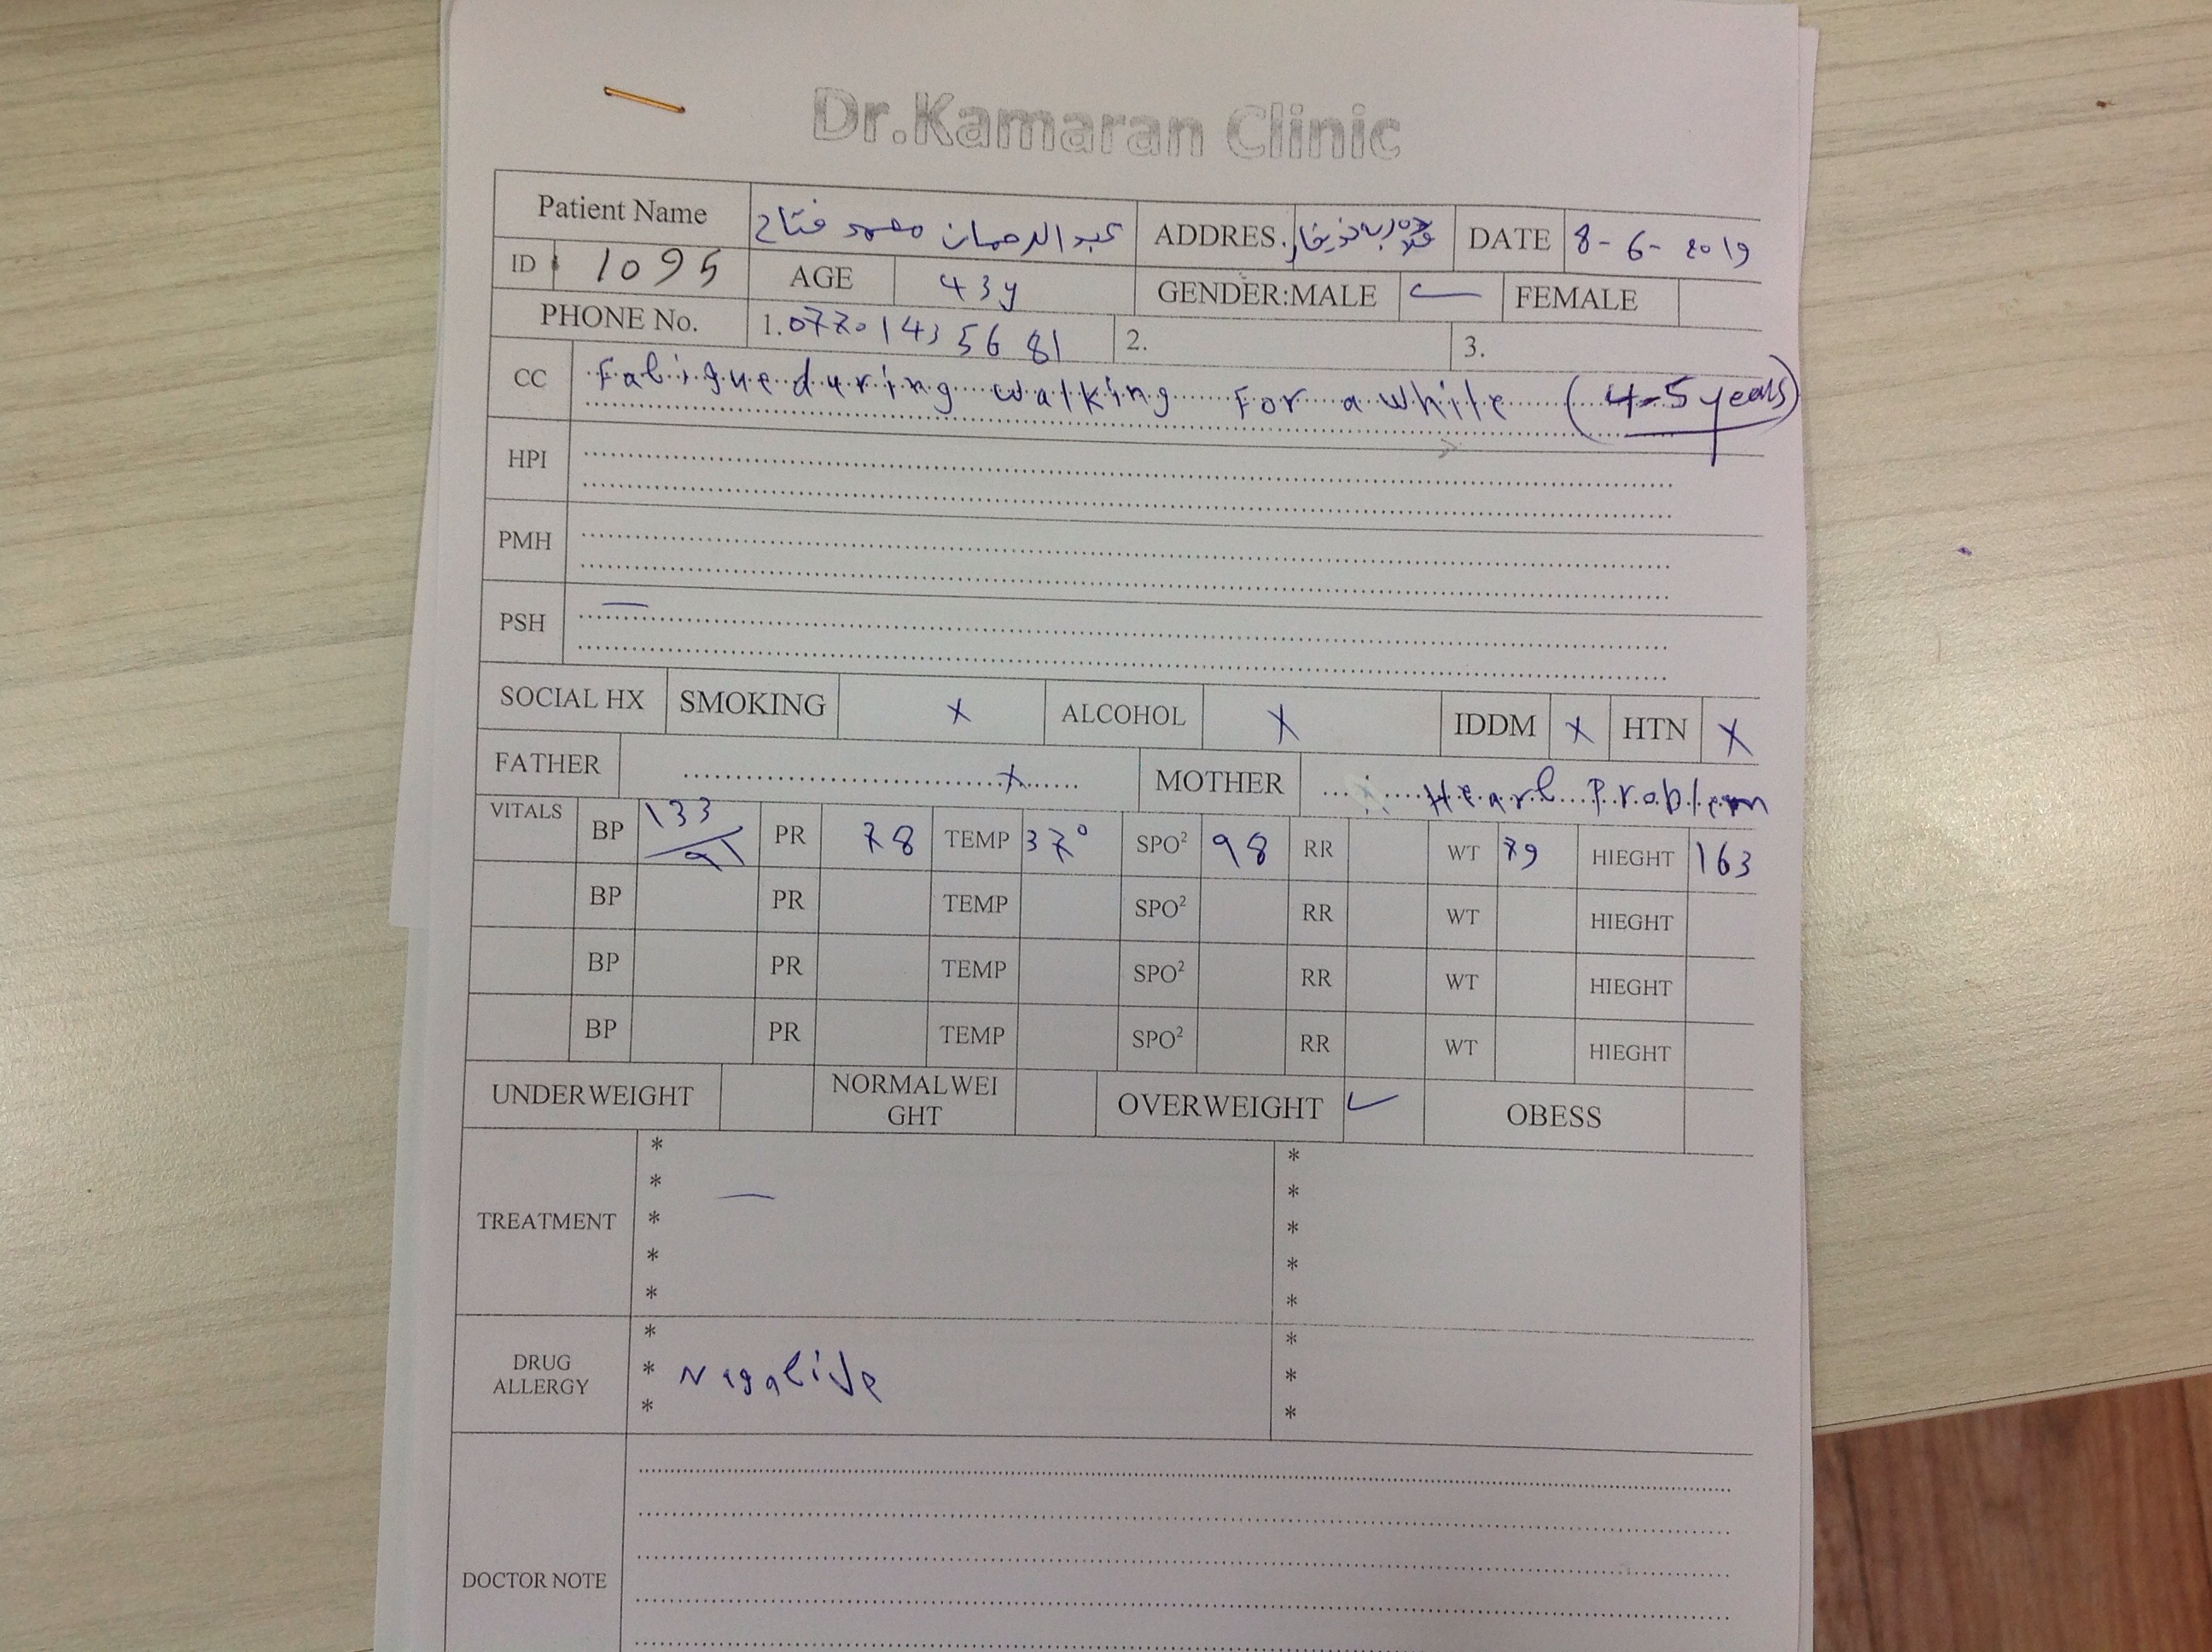 Dr.Kamaran Clinic
Patient Name عبدالرحمان محمد فتاح ADDRES. DATE 8-6-2019
ID 1095 AGE 43y GENDER:MALE ✓ FEMALE
PHONE No. 1. 07701435681 2. 3.
CC Fatigue during walking For a while (4-5 years)
HPI
PMH
PSH —
SOCIAL HX SMOKING x ALCOHOL x IDDM x HTN x
FATHER x MOTHER Heart Problem
VITALS BP 133/91 PR 78 TEMP 37° SPO² 98 RR WT 79 HIEGHT 163
BP PR TEMP SPO² RR WT HIEGHT
BP PR TEMP SPO² RR WT HIEGHT
BP PR TEMP SPO² RR WT HIEGHT
UNDERWEIGHT NORMALWEI OVERWEIGHT ✓ OBESS
GHT
* *
* — *
TREATMENT * *
* *
* *
* *
DRUG * Nagative *
ALLERGY
* *
DOCTOR NOTE